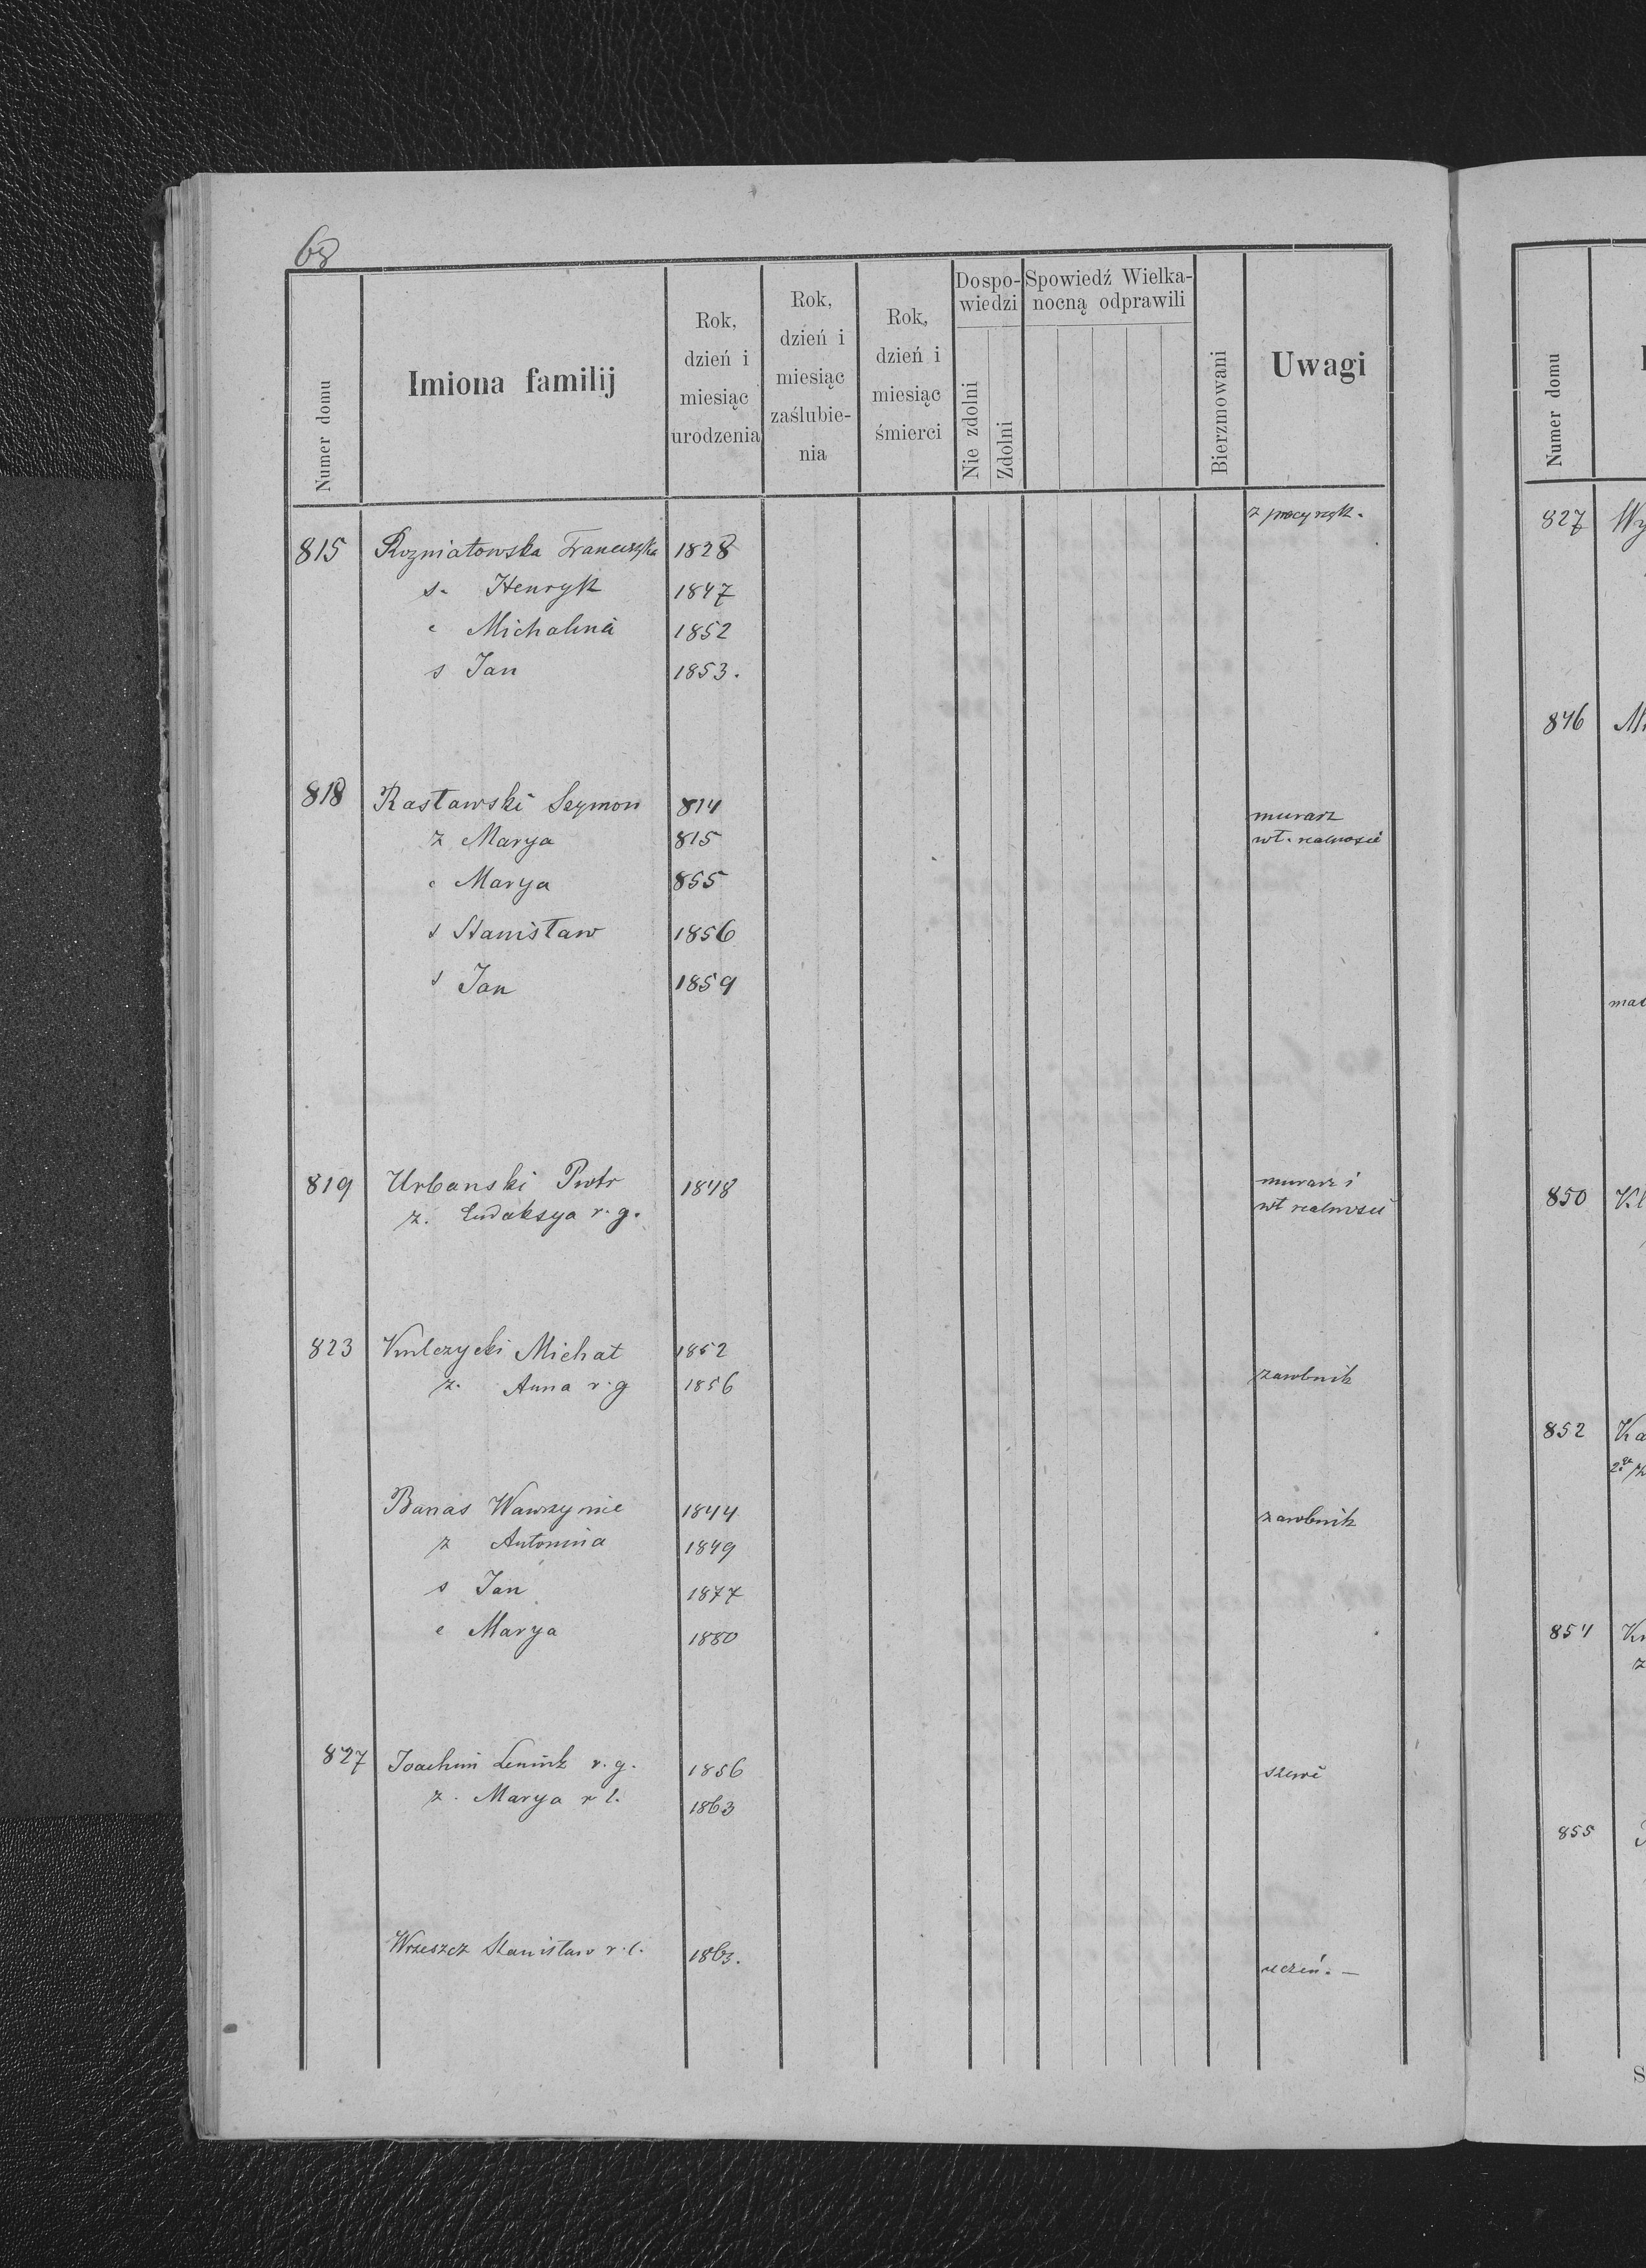 68
Numer domu
Imiona familij
Rok,
dzień i
miesiąc
urodzenia
Rok,
dzień i
miesiąc
zaślubie-
nia
Rok,
dzień i
miesiąc
śmierci
Dospo-
wiedzi
Nie zdolni
Zdolni
Spowiedź Wielka-
nocną odprawili
Bierzmowani
Uwagi
z pracy rąk.
815 Rozniatowska Franciszka 1828
s. Henryk 1847
c Michalina 1852
s Jan 1853.
818 Rastawski Szymon 814 murarz
z Marya 815 wł. realności
c Marya 855
s Stanisław 1856
s Jan 1859
819 Urbanski Piotr 1848 murarz i
z. Eudoksya r. g. wł realności
823 Kulczycki Michał 1852
z. Anna r. g 1856 zarobnik
Banas Wawrzyniec 1844 zarobnik
z Antonina 1849
s Jan 1877
c Marya 1880
827 Joachim r. g. 1856 szewc
z. Marya r l. 1863
Wrzeszcz Stanisław r. l. 1863. uczeń. —
Numer domu
827 Wy
846
850 Kl
852 Ka
854
z
855